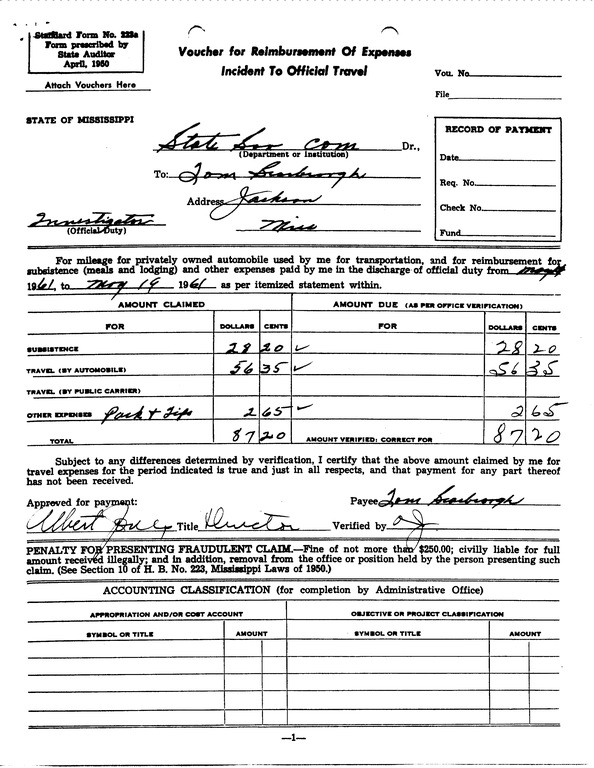 Standard Form No. 223a
Form prescribed by
State Auditor
April, 1950
Attach Vouchers Here
Voucher for Reimbursement Of Expenses
Incident To Official Travel
Vou. No.
File
STATE OF MISSISSIPPI
State Sov Com Dr.,
(Department or Institution)
To: Tom Scarbrough
Address Jackson
Miss
Investigator
(Official Duty)
RECORD OF PAYMENT
Date
Req. No.
Check No.
Fund
For mileage for privately owned automobile used by me for transportation, and for reimbursement for
subsistence (meals and lodging) and other expenses paid by me in the discharge of official duty from
1961, to May 19 1961 as per itemized statement within.
AMOUNT CLAIMED AMOUNT DUE (AS PER OFFICE VERIFICATION)
FOR DOLLARS CENTS FOR DOLLARS CENTS
SUBSISTENCE 28 20 ✓ 28 20
TRAVEL (BY AUTOMOBILE) 56 35 ✓ 56 35
TRAVEL (BY PUBLIC CARRIER)
OTHER EXPENSES Park + Tips 2 65 ✓ 2 65
TOTAL 87 20 AMOUNT VERIFIED: CORRECT FOR 87 20
Subject to any differences determined by verification, I certify that the above amount claimed by me for
travel expenses for the period indicated is true and just in all respects, and that payment for any part thereof
has not been received.
Approved for payment: Payee Tom Scarbrough
Albert Title Director Verified by
PENALTY FOR PRESENTING FRAUDULENT CLAIM.—Fine of not more than $250.00; civilly liable for full
amount received illegally; and in addition, removal from the office or position held by the person presenting such
claim. (See Section 10 of H. B. No. 223, Mississippi Laws of 1950.)
ACCOUNTING CLASSIFICATION (for completion by Administrative Office)
APPROPRIATION AND/OR COST ACCOUNT OBJECTIVE OR PROJECT CLASSIFICATION
SYMBOL OR TITLE AMOUNT SYMBOL OR TITLE AMOUNT
—1—